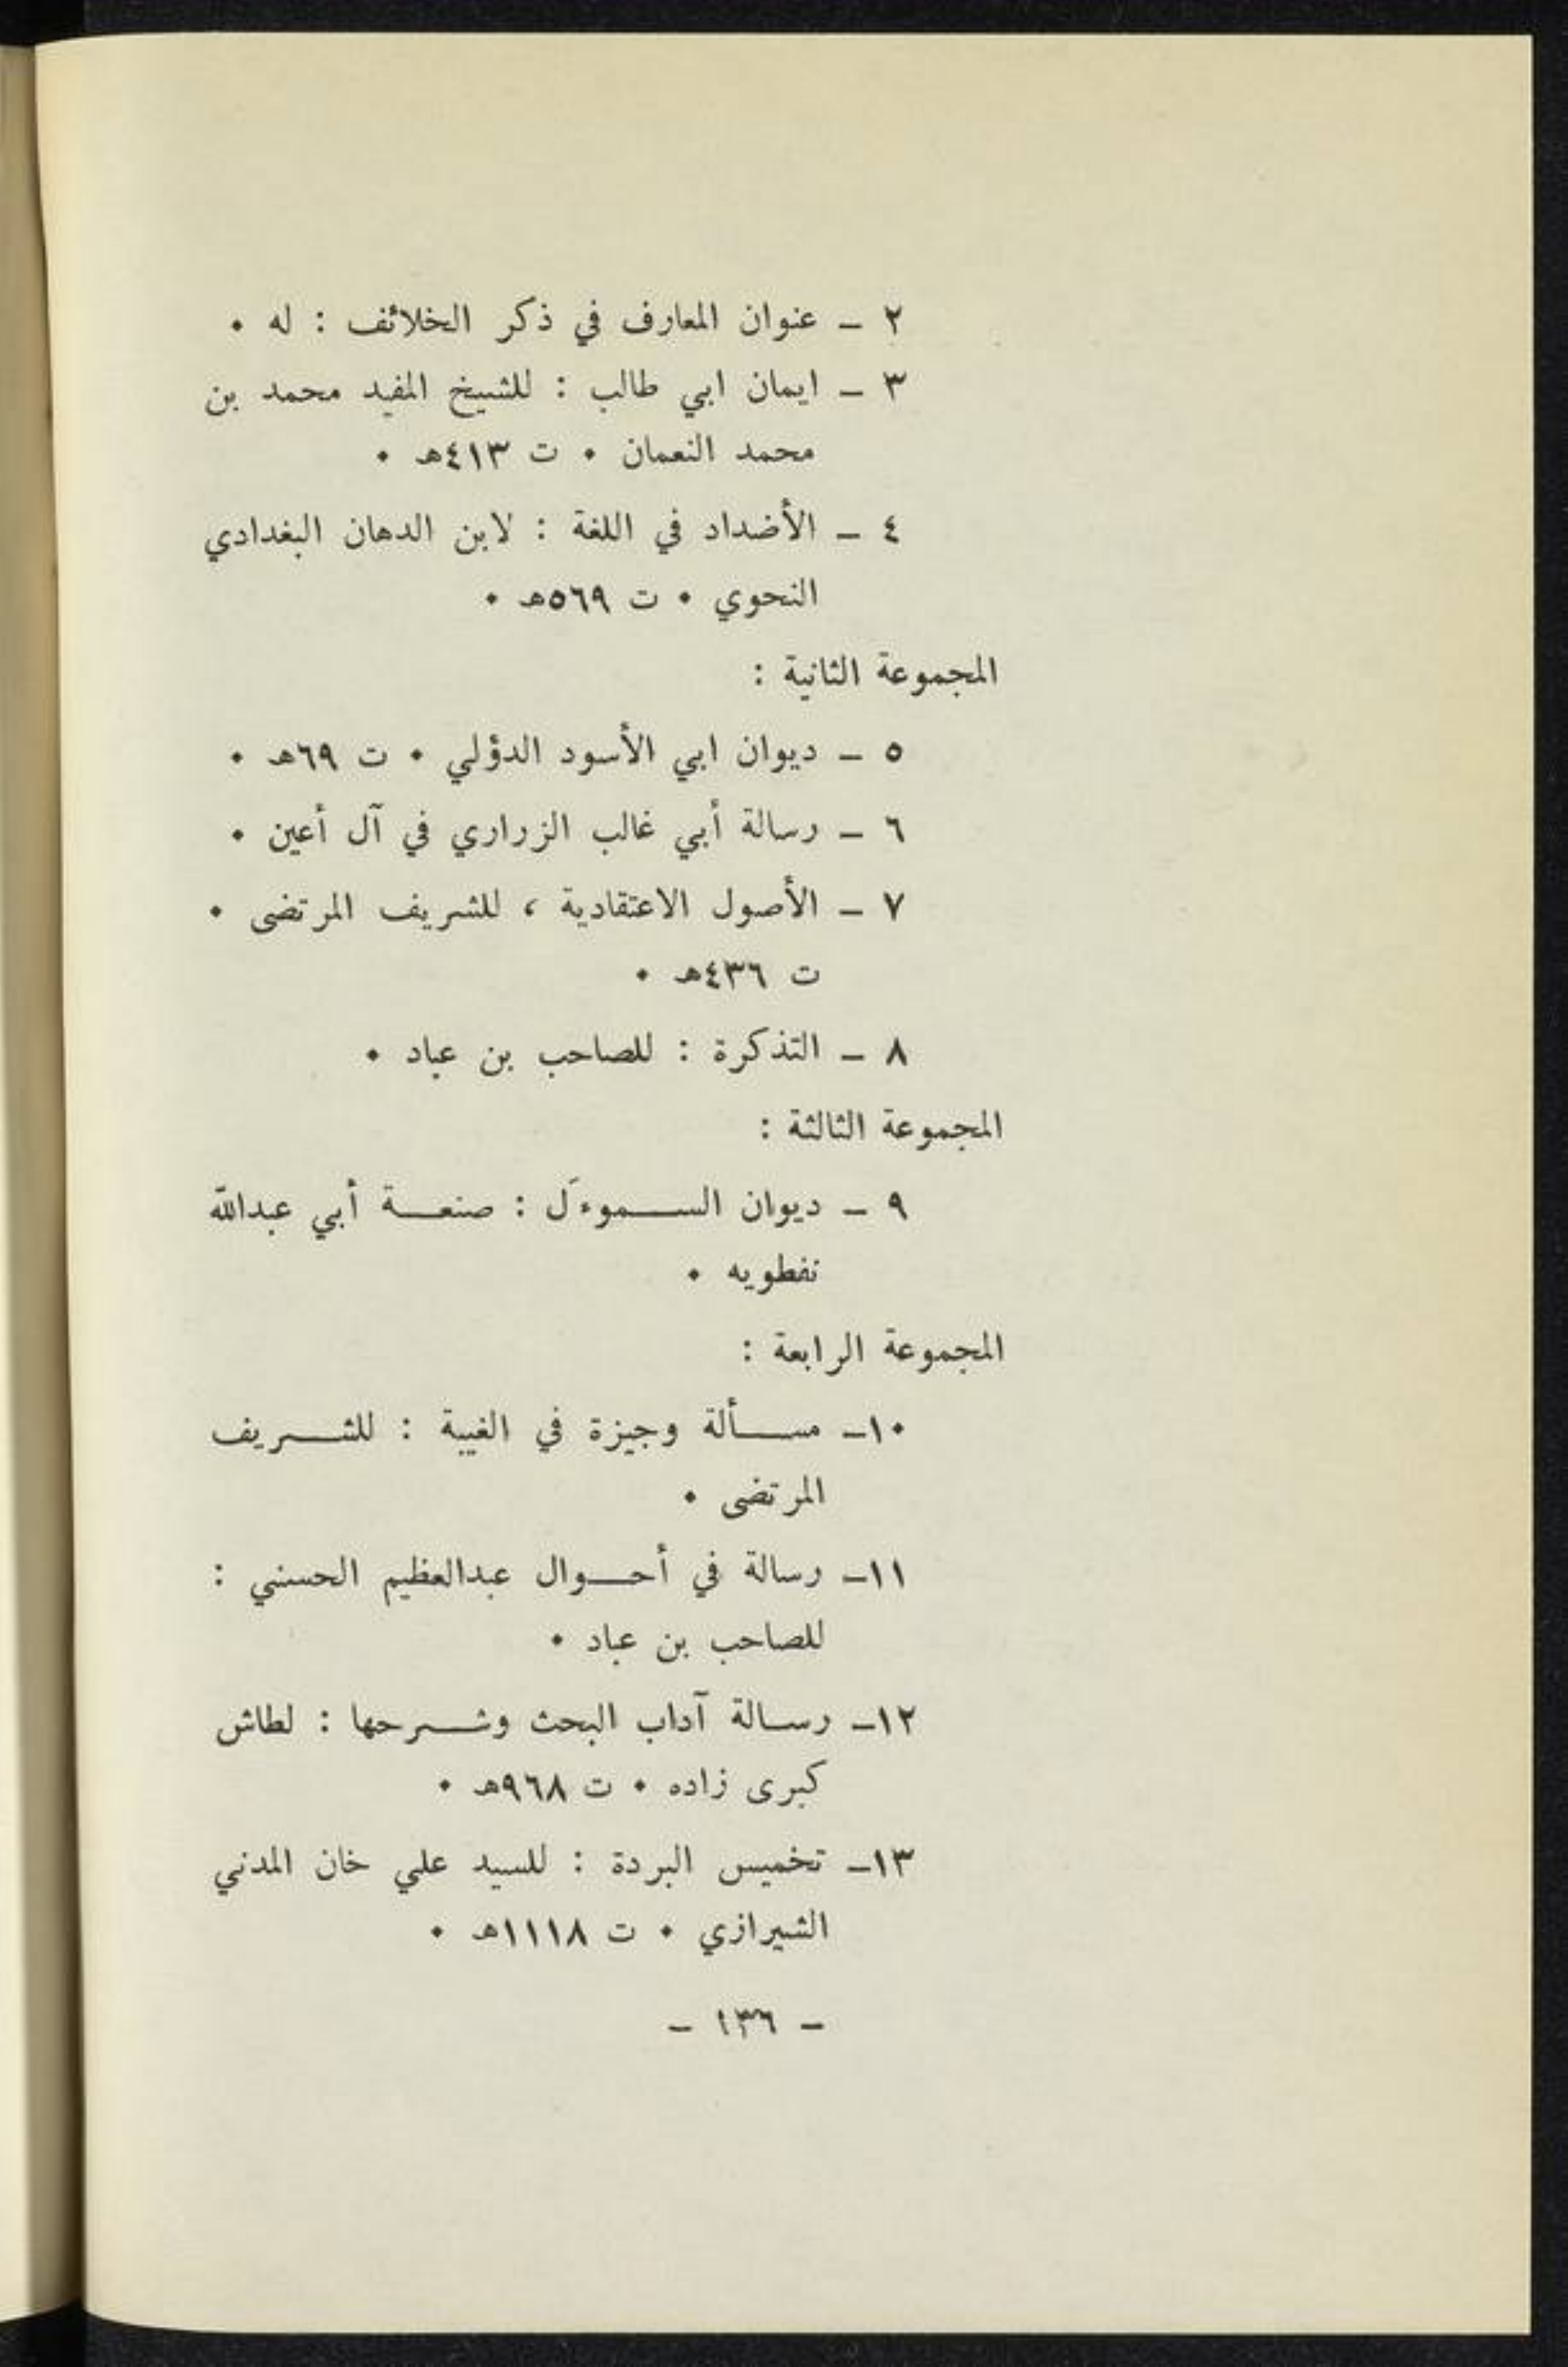 ٢ – عنوان المعارف في ذكر الخلائف : له •
٣ – ايمان ابي طالب : للشيخ المفيد محمد بن
محمد النعمان • ت ٤١٣هـ •
٤ – الأضداد في اللغة : لابن الدهان البغدادي
النحوي • ت ٥٦٩هـ •
المجموعة الثانية :
٥ – ديوان ابي الأسود الدؤلي • ت ٦٩هـ •
٦ – رسالة أبي غالب الزراري في آل أعين •
٧ – الأصول الاعتقادية ، للشريف المرتضى •
ت ٤٣٦هـ •
٨ – التذكرة : للصاحب بن عباد •
المجموعة الثالثة :
٩ – ديوان الســـموءَل : صنعـــة أبي عبدالله
نفطويه •
المجموعة الرابعة :
١٠– مســـألة وجيزة في الغيبة : للشـــريف
المرتضى •
١١– رسالة في أحـــوال عبدالعظيم الحسني :
للصاحب بن عباد •
١٢– رســالة آداب البحث وشـــرحها : لطاش
كبرى زاده • ت ٩٦٨هـ •
١٣– تخميس البردة : للسيد علي خان المدني
الشيرازي • ت ١١١٨هـ •
– ١٣٦ –